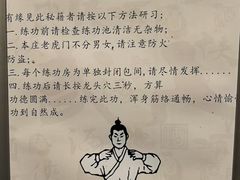 有缘见此秘籍者请按以下方法研习：
一．练功前请检查练功池清洁无杂物；
二．本庄老虎门不分男女，请注意防火
防盗；。
三．每个练功房为单独封闭包间，请尽情发挥......
四．练功后请长按龙头穴三秒，方算
功德圆满......练完此功，浑身筋络通畅，心情愉
功到自然成。